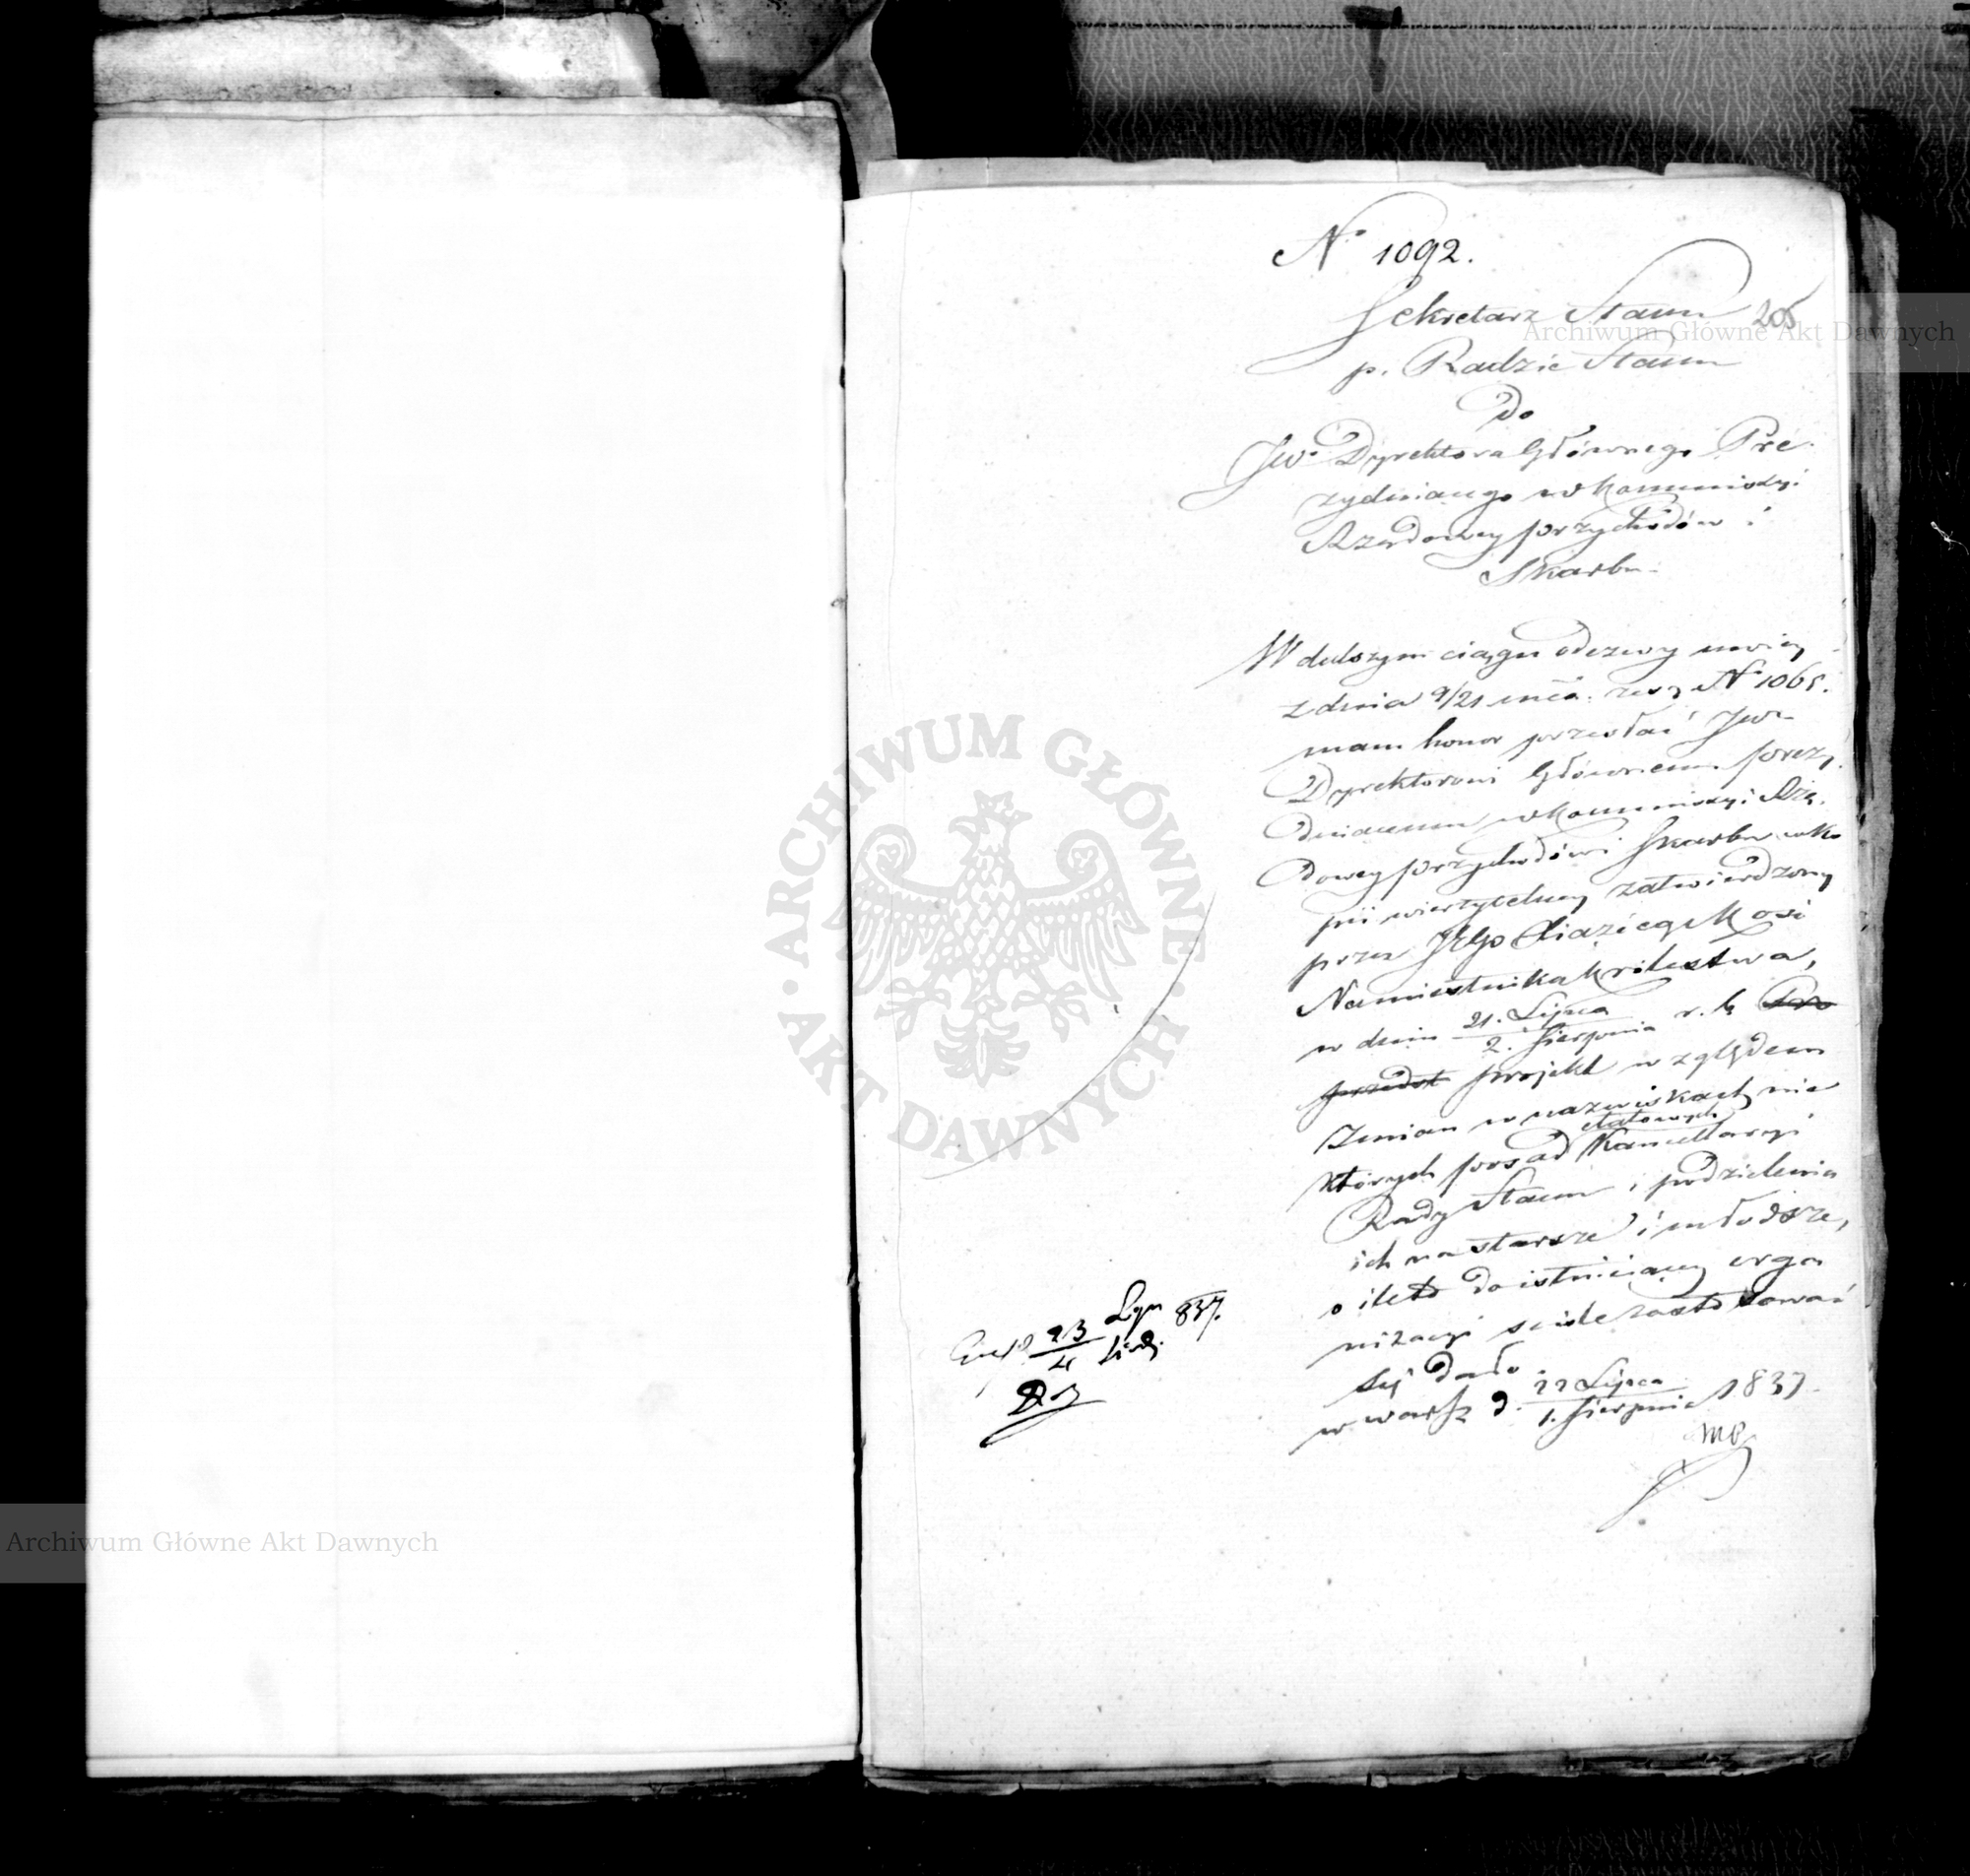 No 1092.
Sekretarz Stanu 205
p. Radzie Stanu
Do
JW. Dyrektora Głównego Pre-
zyduiącego w Kommissyi
Rządowey Przychodów i
Skarbu.
W dalszym ciągu odezwy
z dnia 9/21 No 1065.
mam honor przesłać JW.
Dyrektorowi Głównemu Prezy-
duiącemu w Kommissyi Rzą-
dowey Przychodów i Skarbu w ko-
pii wierzytelney zatwierdzony
przez JO Xiążięcia
Namiestnika Królestwa,
w dniu 21. Lipca / 2. Sierpnia r. b.
projekt względem
zmian w nazwiskach nie
etatowych
których posad Kancellaryi
Rady Stanu i podzielenia
ich na starsze i młodsze,
o ile to do istnieiącey orga
nizacyi zastosować
się dało.
w Warsz d. 22 Lipca / 1. Sierpnia 1837.
23 / 4 837.
ARCHIWUM GŁÓWNE AKT DAWNYCH
Archiwum Główne Akt Dawnych
Archiwum Główne Akt Dawnych